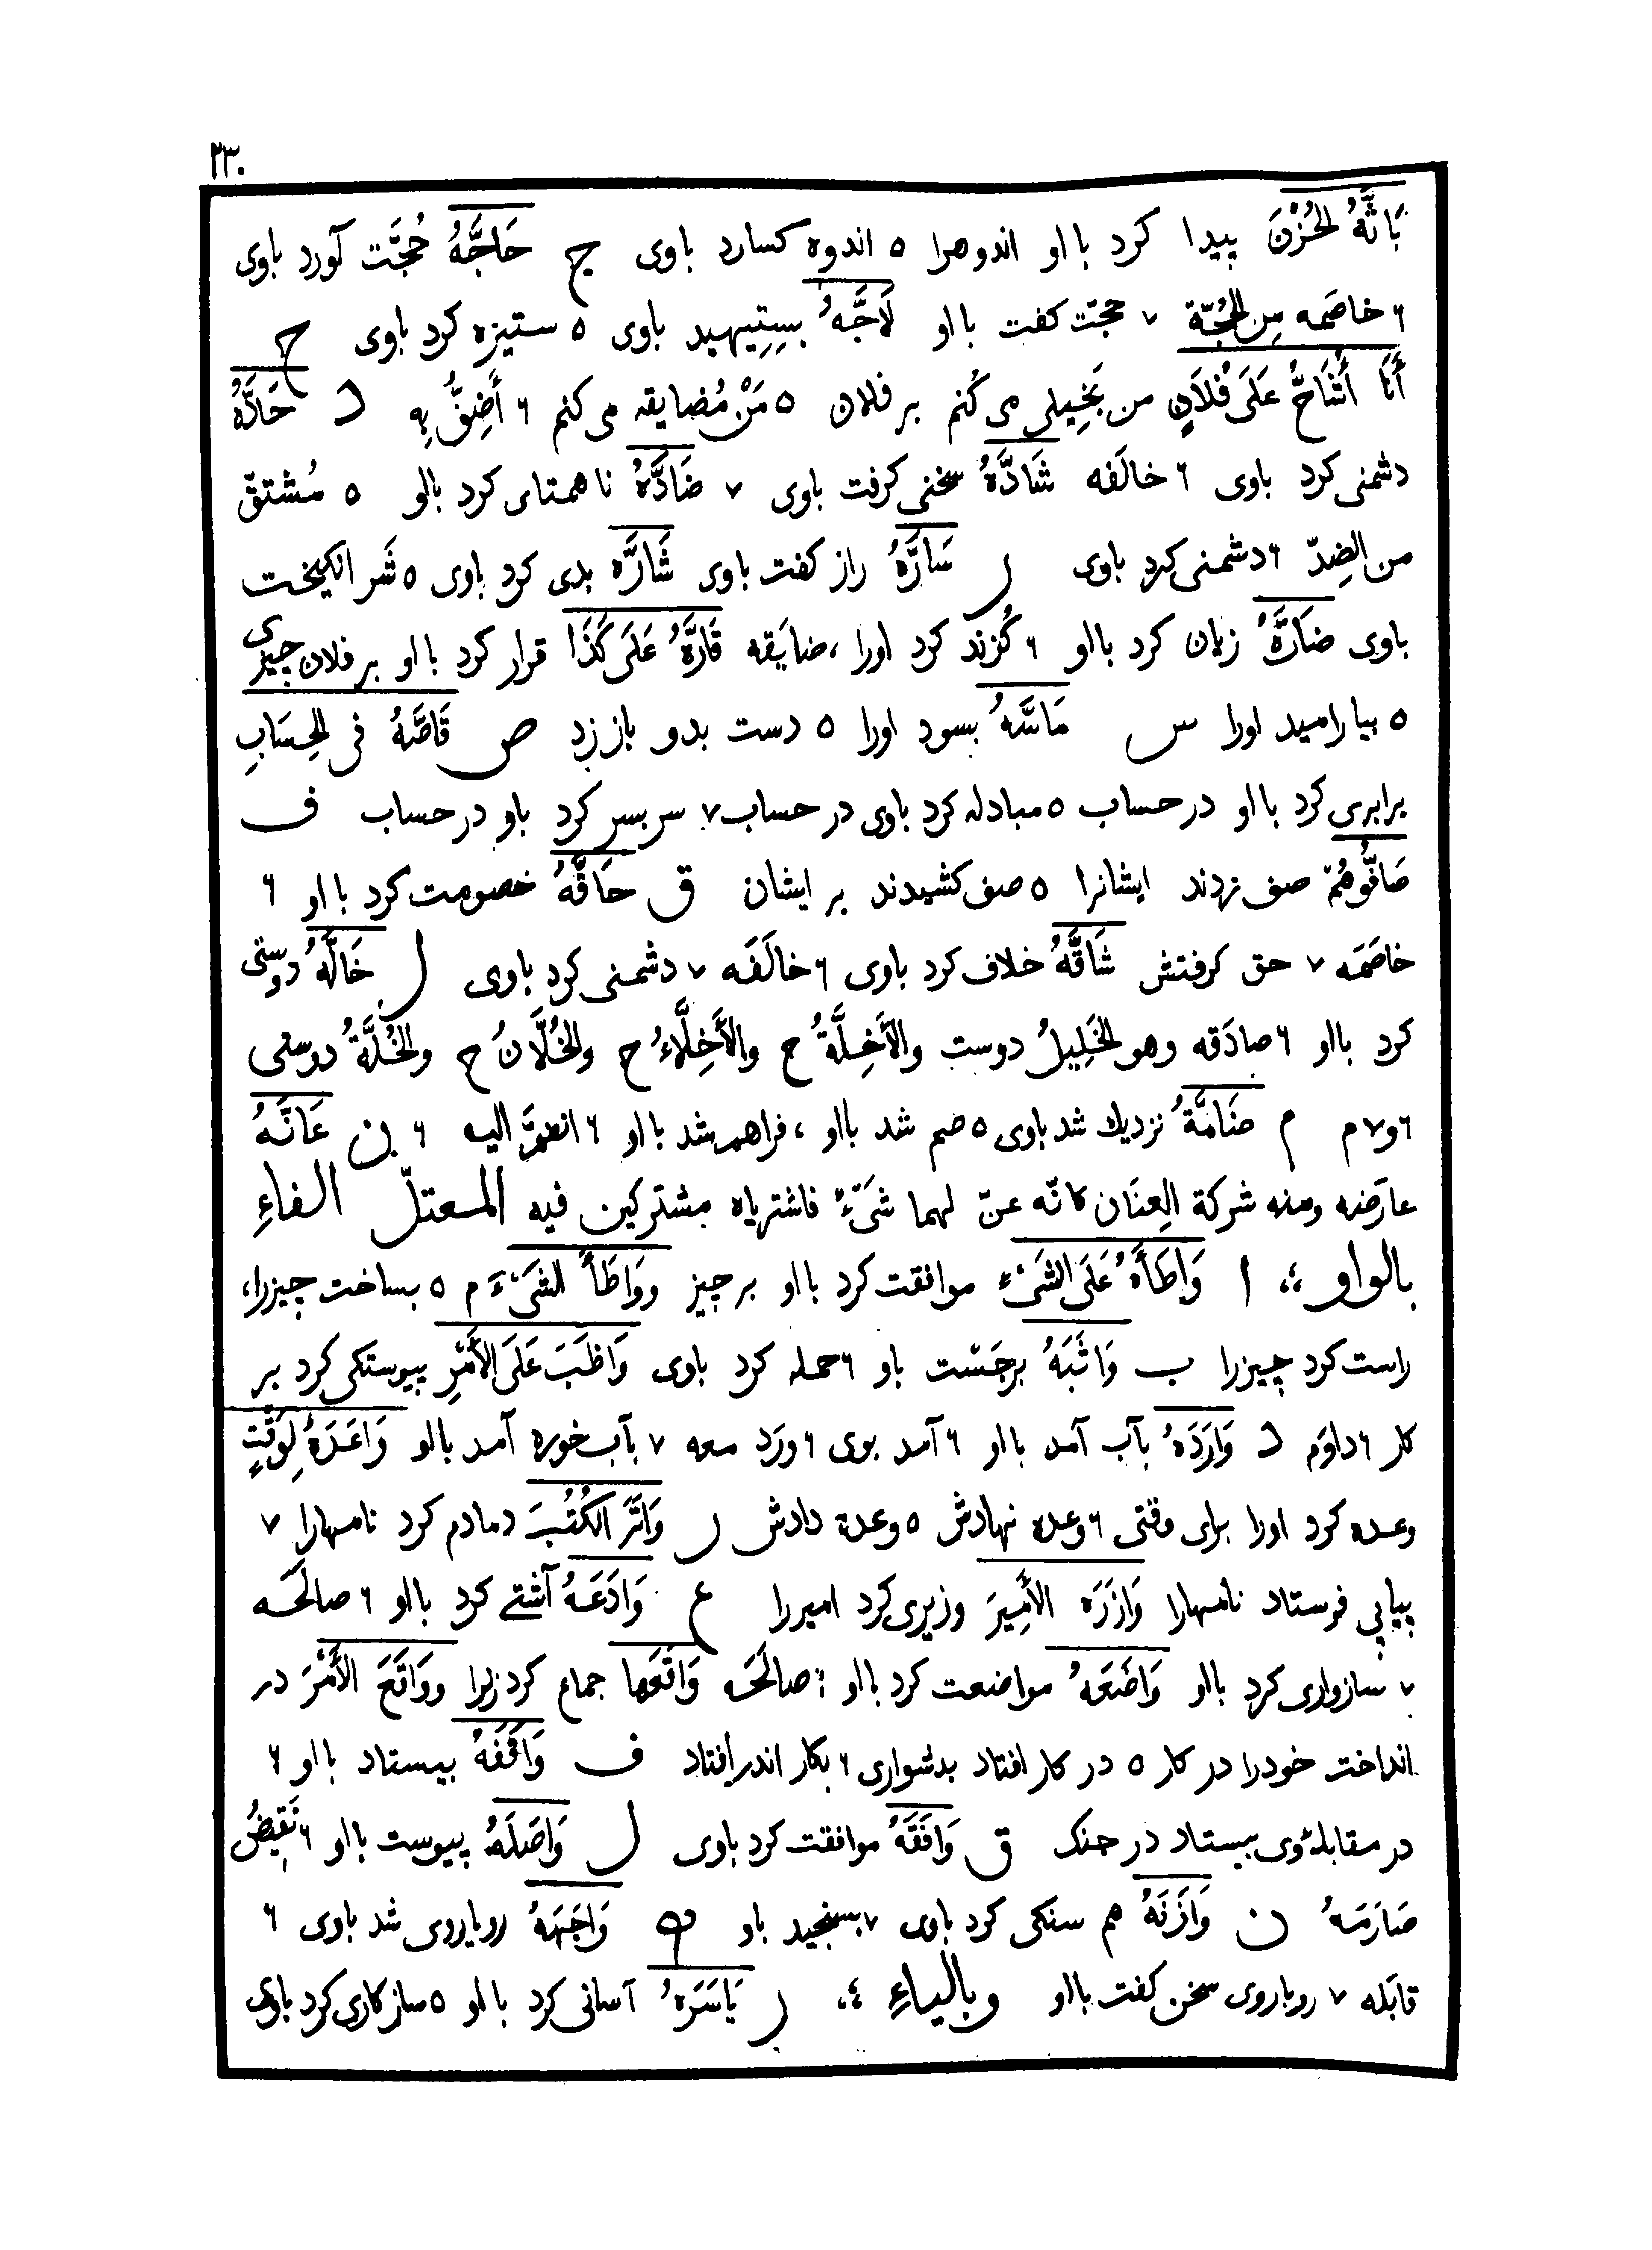 ۲۳۰
بَاثَّهُ الحُزْنَ پیدا کرد با او اندوهرا ۵ اندوه کسارد باوی ج حَاجَّهُ حُجَّت آورد باوی
۶ خاصَمه مِن الحُجّة ۷ حجت کفت با او لَاجَّهُ بِستِیهید باوی ۵ ستیزه کرد باوی ح
أَنَا أُشَاحُّ عَلَی فُلَانٍ من بَخِیلی می کُنم بر فلان ۵ مَنْ مُضایقه می کنم ۶ أَضِنُّ بِهِ د حَادَّهُ
دشمنی کرد باوی ۶ خالَفه شَادَّهُ سختی کرفت باوی ۷ ضَادَّهُ ناهمتای کرد بااو ۵ مُشتقّ
من الضِدّ ۶ دشمنی کرد باوی ر سَارَّهُ راز کفت باوی شَارَّه بدی کرد باوی ۵ شَر انکیخت
باوی ضَارَّهُ زیان کرد بااو ۶ کُزند کرد اورا ، ضایَقه قَارَّهُ عَلَی کَذَا قرار کرد با او بر فلان چیزی
۵ بیارامید اورا س مَاسَّهُ بسود اورا ۵ دست بدو باز زد ص قَاصَّهُ فی الحِسَابِ
برابری کرد با او در حساب ۵ مبادله کرد باوی در حساب ۷ سر بسر کرد باو در حساب ف
صَافُّوهُمْ صف زدند ایشانرا ۵ صف کشیدند بر ایشان ق حَاقَّهُ خصومت کرد با او ۶
خاصَمَه ۷ حق کرفتش شَاقَّهُ خلاف کرد باوی ۶ خالَفَه ۷ دشمنی کرد باوی ل خَالَّهُ دوستی
کرد بااو ۶ صادَقه وهو الخَلِیلُ دوست والأَخِلَّةُ ج والأَخِلَّاءُ ج والخُلَّانُ ج والخُلَّةُ دوستی
۶ و ۷ م م ضَامَّهُ نزدیك شد باوی ۵ ضم شد بااو ، فراهم شد با او ۶ انضمّ الیه ۶ ن عَانَّهُ
عارَضه ومنه شرکة العِنَان کانّه عنّ لهما شَیْءٌ فاشتریاه مشترکین فیه المعتلّ الفاءِ
بالواو ؛، ا وَاطَأَهُ عَلَی الشَیْءِ موافقت کرد با او بر چیز ووَاطَأَ الشَیْءَ م ۵ بساخت چیزرا،
راست کرد چیزرا ب وَاثَبَهُ برجَست باو ۶ حمله کرد باوی وَاظَبَ عَلَی الأَمْرِ پیوستکی کرد بر
کار ۶ داوَم د وَارَدَهُ بآب آمد با او ۶ آمد بوی ۶ ورَد معه ۷ بآب خوره آمد بااو وَاعَدَهُ لِوَقْتٍ
وعده کرد اورا برای وقتی ۶ وعده نهادش ۵ وعدة دادش ر وَاتَرَ الکُتُبَ دمادم کرد نامهارا ۷
پیاپی فرستاد نامهارا وَازَرَه الأَمِیرَ وزیری کرد امیررا ع وَادَعَهُ آشتے کرد بااو ۶ صالَحَه
۷ سازواری کرد بااو وَاضَعَهُ مواضعت کرد با او ۶ صالَحَه وَاقَعَها جماع کرد زنرا ووَاقَعَ الأَمْرَ در
انداخت خودرا در کار ۵ در کار افتاد بدشواری ۶ بکار اندر افتاد ف وَاقَفَهُ بیستاد با او ۶
در مقابلۀ وی بیستاد در جنک ق وَافَقَهُ موافقت کرد باوی ل وَاصَلَهُ پیوست با او ۶ نَقِیضُ
صَارَمَهُ ن وَازَنَهُ هم سنکی کرد باوی ۷ بسنجید باو ه وَاجَهَهُ رویاروی شد باوی ۶
قابَله ۷ رویاروی سخن کفت بااو وبالیاءِ ؛، ر یَاسَرَهُ آسانی کرد با او ۵ سازکاری کرد باوی